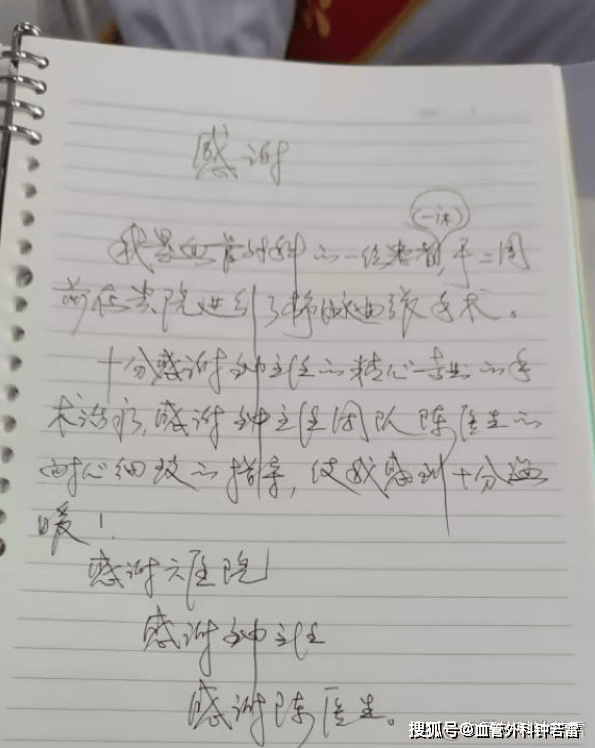 感谢
(一床)
我是血管外科的一位患者,于二周
前在贵院进行了静脉曲张手术。
十分感谢钟主任的精心专业的手
术治疗,感谢钟主任团队陈医生的
耐心细致的指导,使我感到十分温
暖!
感谢六医院
感谢钟主任
感谢陈医生。
搜狐号@血管外科钟若雷